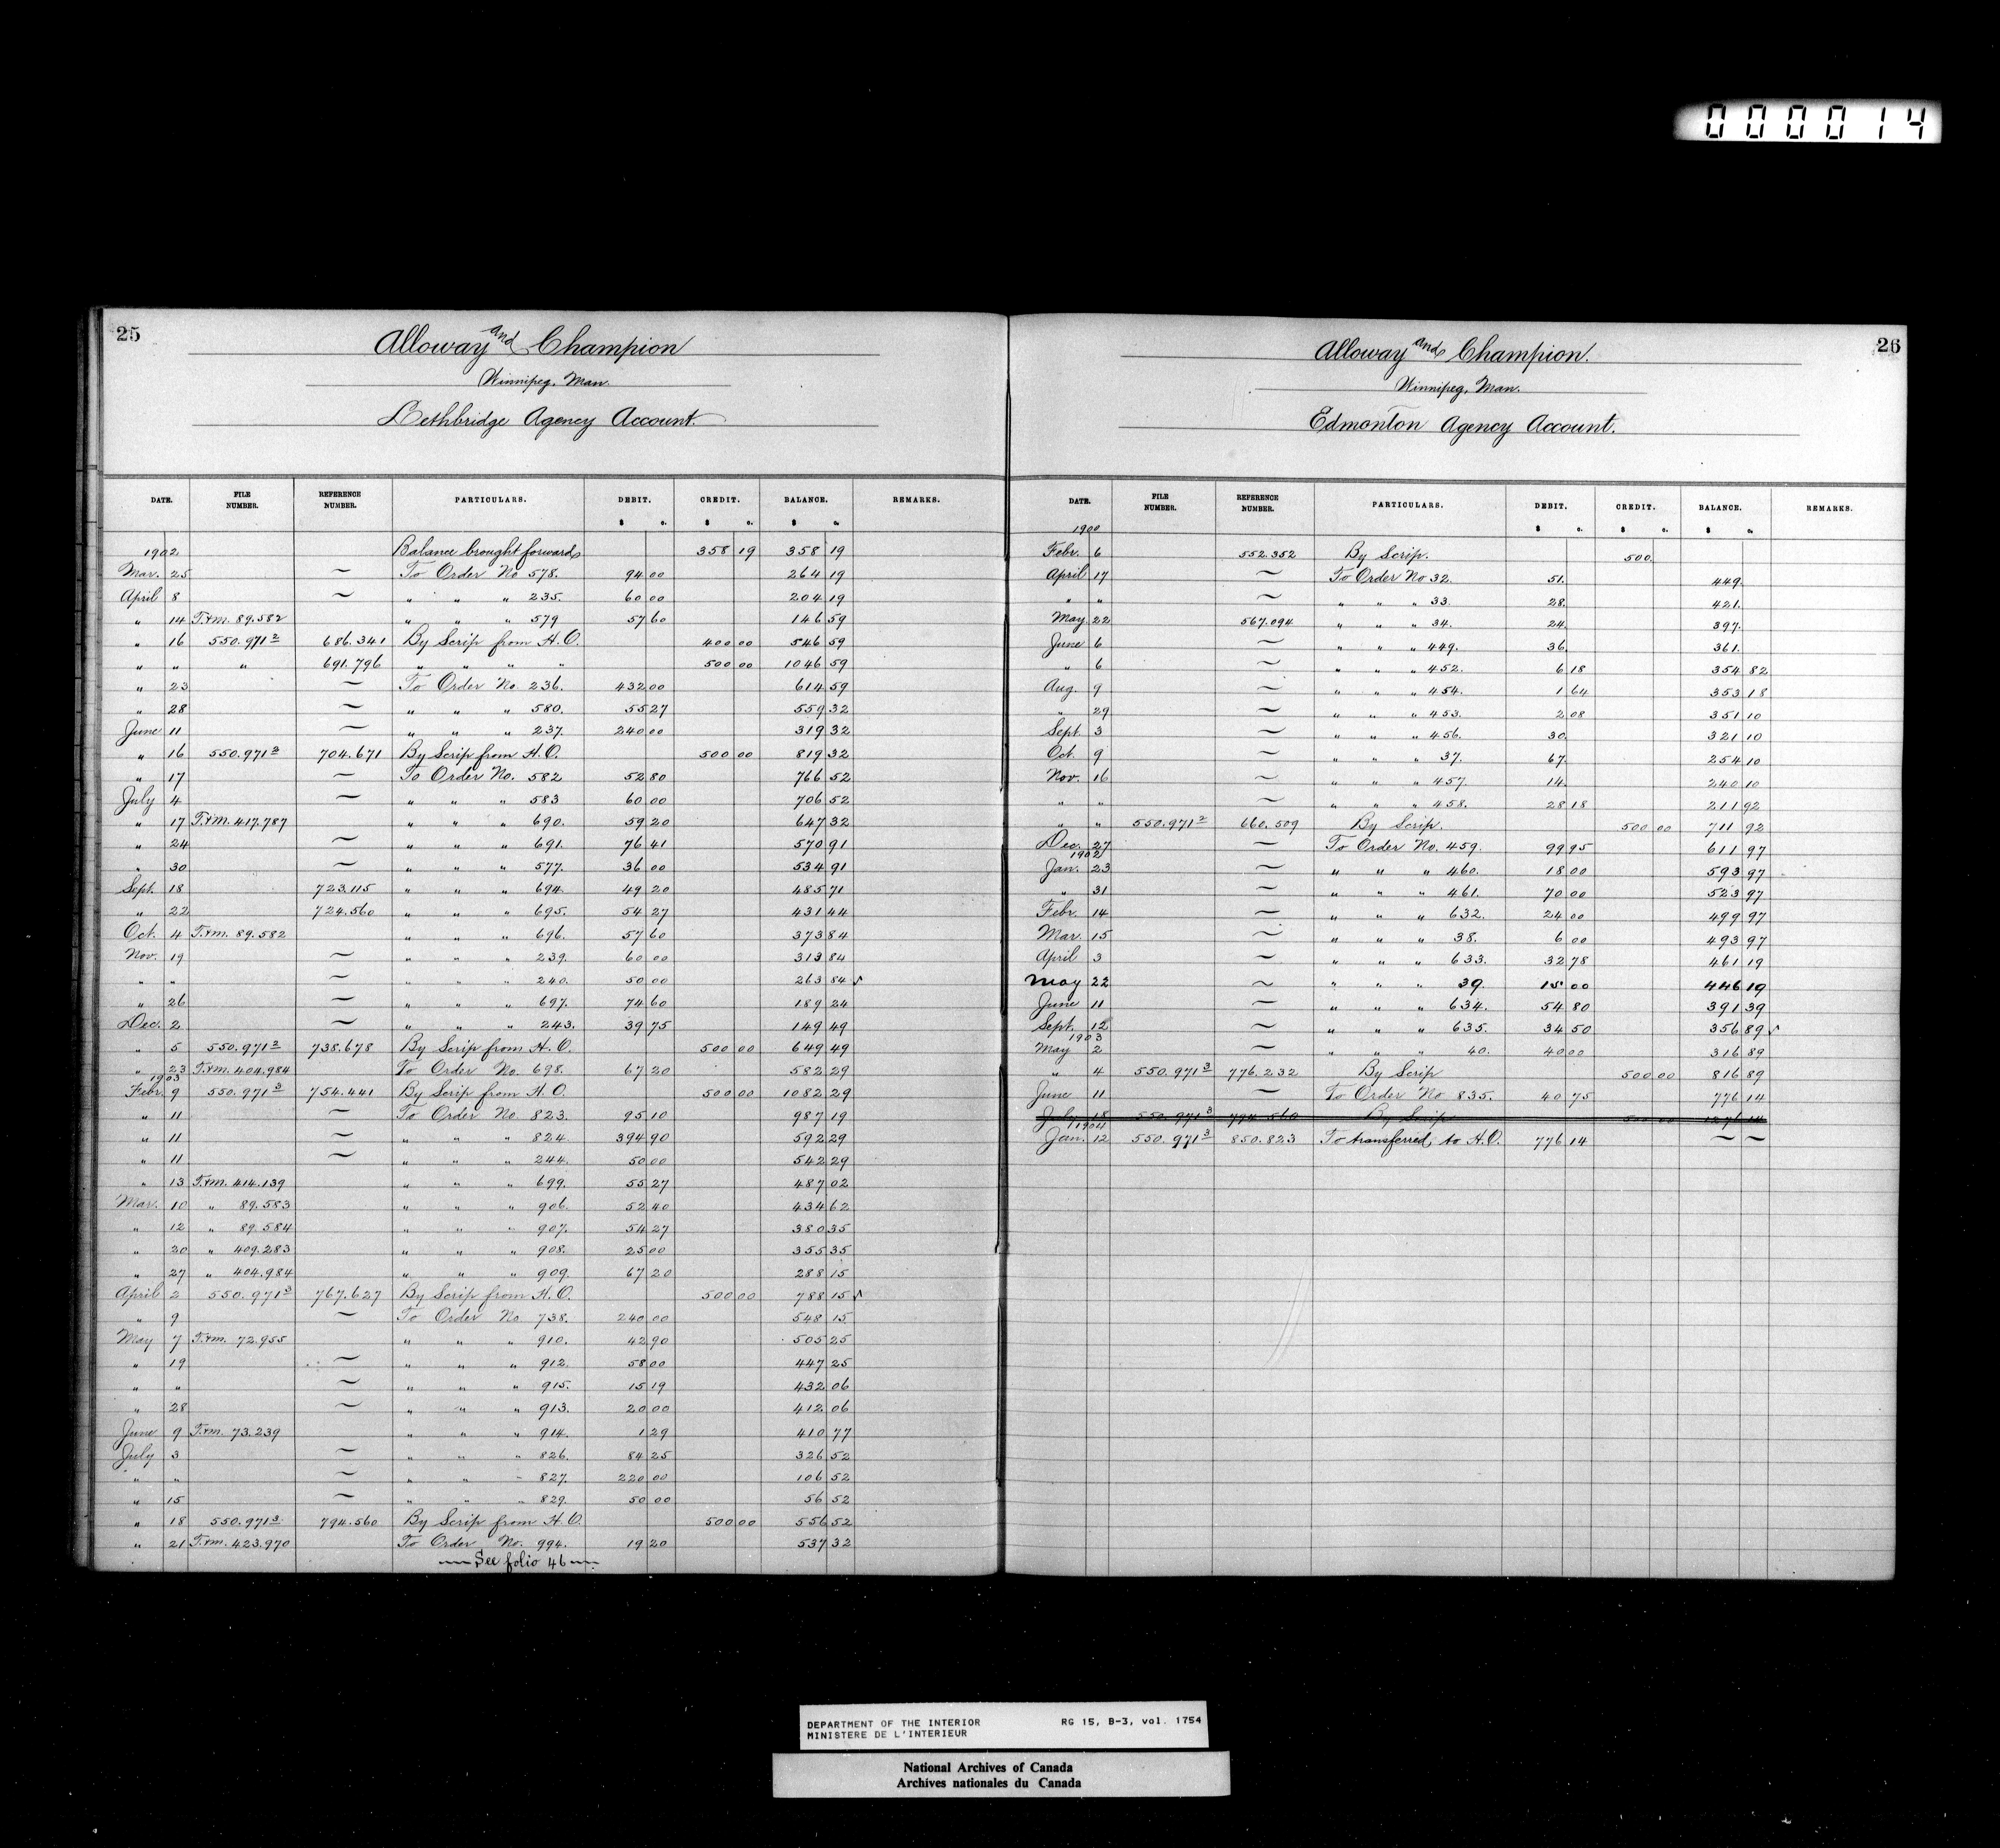 000014
25
Alloway and Champion
Winnipeg, Man.
Lethbridge Agency Account.
DATE. FILE NUMBER. REFERENCE NUMBER. PARTICULARS. DEBIT. CREDIT. BALANCE. REMARKS.
$ c. $ c. $ c.
1902 Balance brought forward 358 19 358 19
Mar. 25 ~ To Order No 578. 94 00 264 19
April 8 ~ " " " 235. 60 00 204 19
" 14 T.&M. 89.582 " " " 579 57 60 146 59
" 16 550.971² 686.341 By Scrip from H.O. 400 00 546 59
" " " 691.796 " " " " 500 00 1046 59
" 23 ~ To Order No. 236. 432 00 614 59
" 28 ~ " " " 580. 55 27 559 32
June 11 ~ " " " 237. 240 00 319 32
" 16 550.971² 704.671 By Scrip from H.O. 500 00 819 32
" 17 ~ To Order No. 582 52 80 766 52
July 4 ~ " " " 583 60 00 706 52
" 17 T.&M. 417.787 " " " 690. 59 20 647 32
" 24 ~ " " " 691. 76 41 570 91
" 30 ~ " " " 577. 36 00 534 91
Sept. 18 723.115 " " " 694. 49 20 485 71
" 22 724.560 " " " 695. 54 27 431 44
Oct. 4 T.&M. 89.582 " " " 696. 57 60 373 84
Nov. 19 ~ " " " 239. 60 00 313 84
" " ~ " " " 240. 50 00 263 84 ✓
" 26 ~ " " " 697. 74 60 189 24
Dec. 2 ~ " " " 243. 39 75 149 49
" 5 550.971² 738.678 By Scrip from H.O. 500 00 649 49
" 23 T.&M. 404.984 To Order No. 698. 67 20 582 29
1903
Febr. 9 550.971³ 754.441 By Scrip from H.O. 500 00 1082 29
" 11 ~ To Order No. 823. 95 10 987 19
" 11 ~ " " " 824. 394 90 592 29
" 11 ~ " " " 244. 50 00 542 29
" 13 T.&M. 414.139 " " " 699. 55 27 487 02
Mar. 10 " 89.583 " " " 906. 52 40 434 62
" 12 " 89.584 " " " 907. 54 27 380 35
" 20 " 409.283 " " " 908. 25 00 355 35
" 27 " 404.984 " " " 909. 67 20 288 15
April 2 550.971³ 767.627 By Scrip from H.O. 500 00 788 15 ✓
" 9 ~ To Order No. 738. 240 00 548 15
May 7 T.&M. 72.955 " " " 910. 42 90 505 25
" 19 ~ " " " 912. 58 00 447 25
" " ~ " " " 915. 15 19 432 06
" 28 ~ " " " 913. 20 00 412 06
June 9 T.&M. 73.239 " " " 914. 1 29 410 77
July 3 ~ " " " 826. 84 25 326 52
" " ~ " " " 827. 220 00 106 52
" 15 ~ " " " 829. 50 00 56 52
" 18 550.971³ 794.560 By Scrip from H.O. 500 00 556 52
" 21 T.&M. 423.970 To Order No. 994. 19 20 537 32
See folio 46
26
Alloway and Champion.
Winnipeg, Man.
Edmonton Agency Account.
DATE. FILE NUMBER. REFERENCE NUMBER. PARTICULARS. DEBIT. CREDIT. BALANCE. REMARKS.
$ c. $ c. $ c.
1900
Febr. 6 552.352 By Scrip. 500.
April 17 ~ To Order No 32. 51. 449.
" " ~ " " " 33. 28. 421.
May 22 567.094 " " " 34. 24. 397.
June 6 ~ " " " 449. 36. 361.
" 6 ~ " " " 452. 6 18 354 82
Aug. 9 ~ " " " 454. 1 64 353 18
" 29 ~ " " " 453. 2 08 351 10
Sept. 3 ~ " " " 456. 30. 321 10
Oct. 9 ~ " " " 37. 67. 254 10
Nov. 16 ~ " " " 457. 14. 240 10
" " ~ " " " 458. 28 18 211 92
" " 550.971² 660.509 By Scrip. 500 00 711 92
Dec. 27 ~ To Order No. 459. 99 95 611 97
1902
Jan. 23 ~ " " " 460. 18 00 593 97
" 31 ~ " " " 461. 70 00 523 97
Febr. 14 ~ " " " 632. 24 00 499 97
Mar. 15 ~ " " " 38. 6 00 493 97
April 3 ~ " " " 633. 32 78 461 19
May 22 ~ " " " 39. 15 00 446 19
June 11 ~ " " " 634. 54 80 391 39
Sept. 12 ~ " " " 635. 34 50 356 89 ✓
1903
May 2 ~ " " " 40. 40 00 316 89
" 4 550.971³ 776.232 By Scrip 500 00 816 89
June 11 ~ To Order No 835. 40 75 776 14
July 18 550.971³ 794.560 By Scrip 500 00 1276 14
1904
Jan. 12 550.971³ 850.823 To transferred, to H.O. 776 14 ~ ~
DEPARTMENT OF THE INTERIOR RG 15, B-3, vol. 1754
MINISTERE DE L'INTERIEUR
National Archives of Canada
Archives nationales du Canada